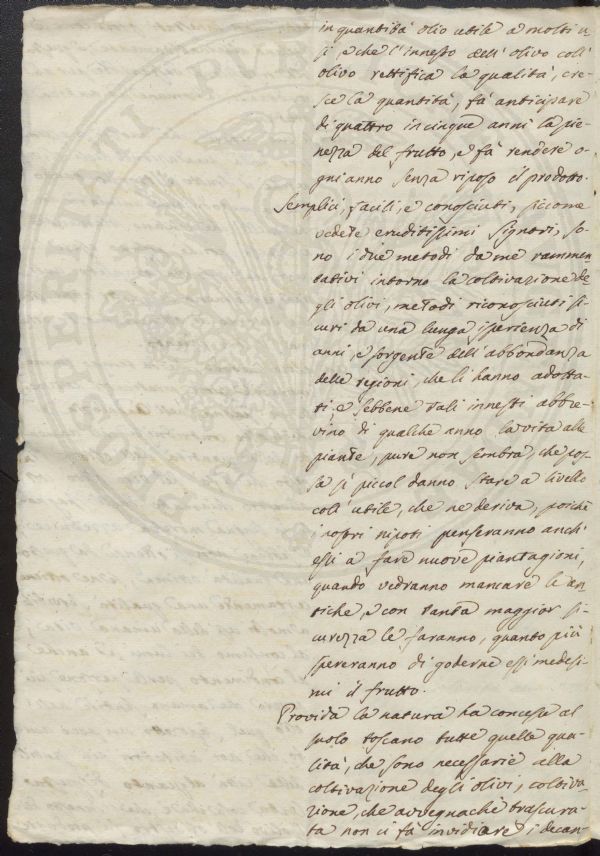 in quantità olio utile a molti u
si, e che l'innesto dell'olivo coll'
olivo rettifica la qualità, cre-
sce la quantità, fà anticipare
di quattro in cinque anni la pie-
nezza del frutto, e fà rendere o-
gni anno senza riposo il prodotto.
Semplici, facili, e conosciuti, siccome
vedete eruditissimi Signori, so-
no i due metodi da me rammen-
tativi intorno la coltivazione de-
gli olivi, metodi riconosciuti si-
curi da una lunga isperienza di
anni, e sorgente dell'abbondanza
delle regioni, che li hanno adotta-
ti, e sebbene tali innesti abbre-
vino di qualche anno la vita alle
piante, pure non sembra, che pos-
sa sì piccol danno stare a livello
coll'utile, che ne deriva, poichè
i nostri nipoti penseranno anch'
essi a fare nuove piantagioni,
quando vedranno mancare le an-
tiche, e con tanta maggior si-
curezza le faranno, quanto più
spereranno di goderne essi medesi-
mi il frutto.
Provida la natura ha concesse al
suolo toscano tutte quelle qua-
lità, che sono necessarie alla
coltivazione degli olivi, coltiva-
zione, che avvegnachè trascura-
ta non ci fà invidiare i decan-